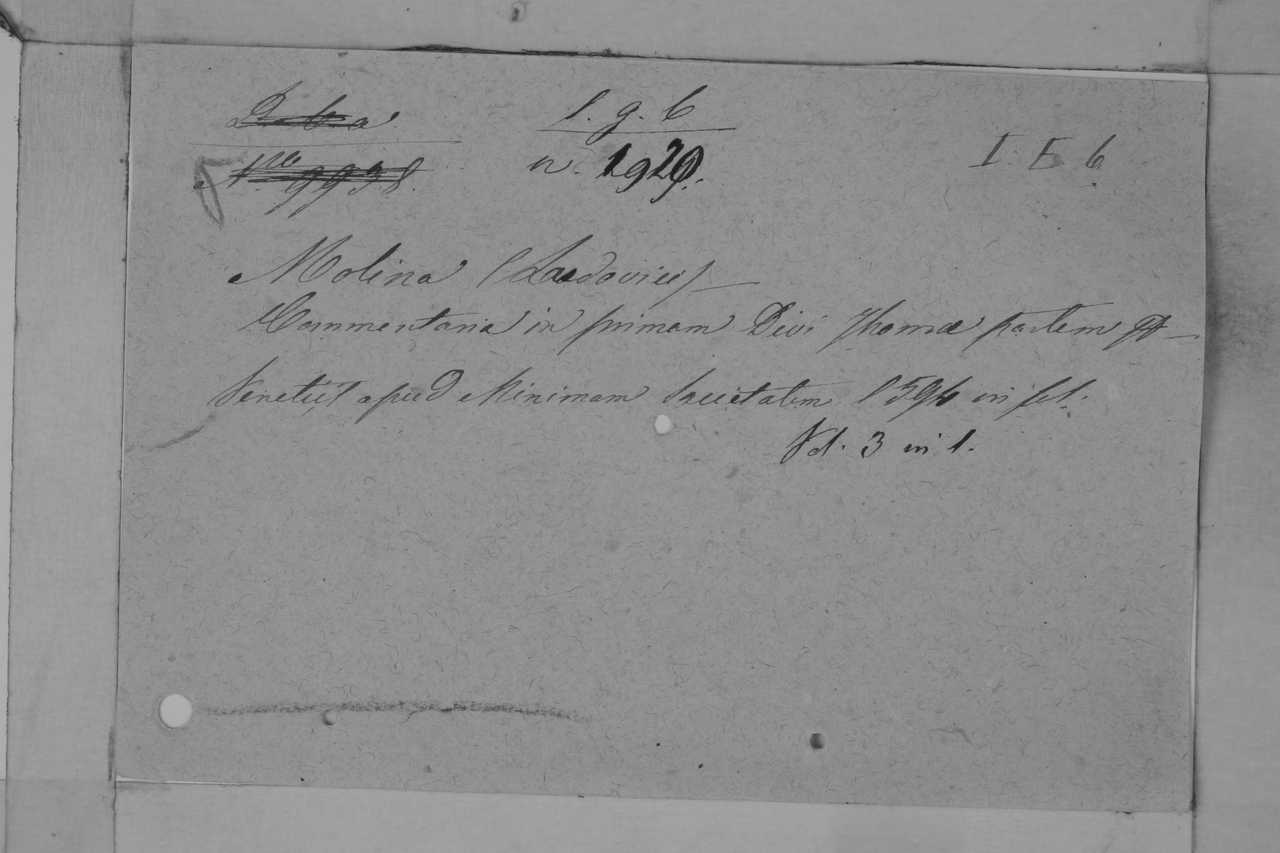 1. g. 6 I. E. 6
N.ro 9938. n. 1929.
Molina (Ludovici)
Commentaria in primam Divi Thomæ partem
Venetiis apud Minimam Societatem 1594 in fol.
Vol. 3 in 1.